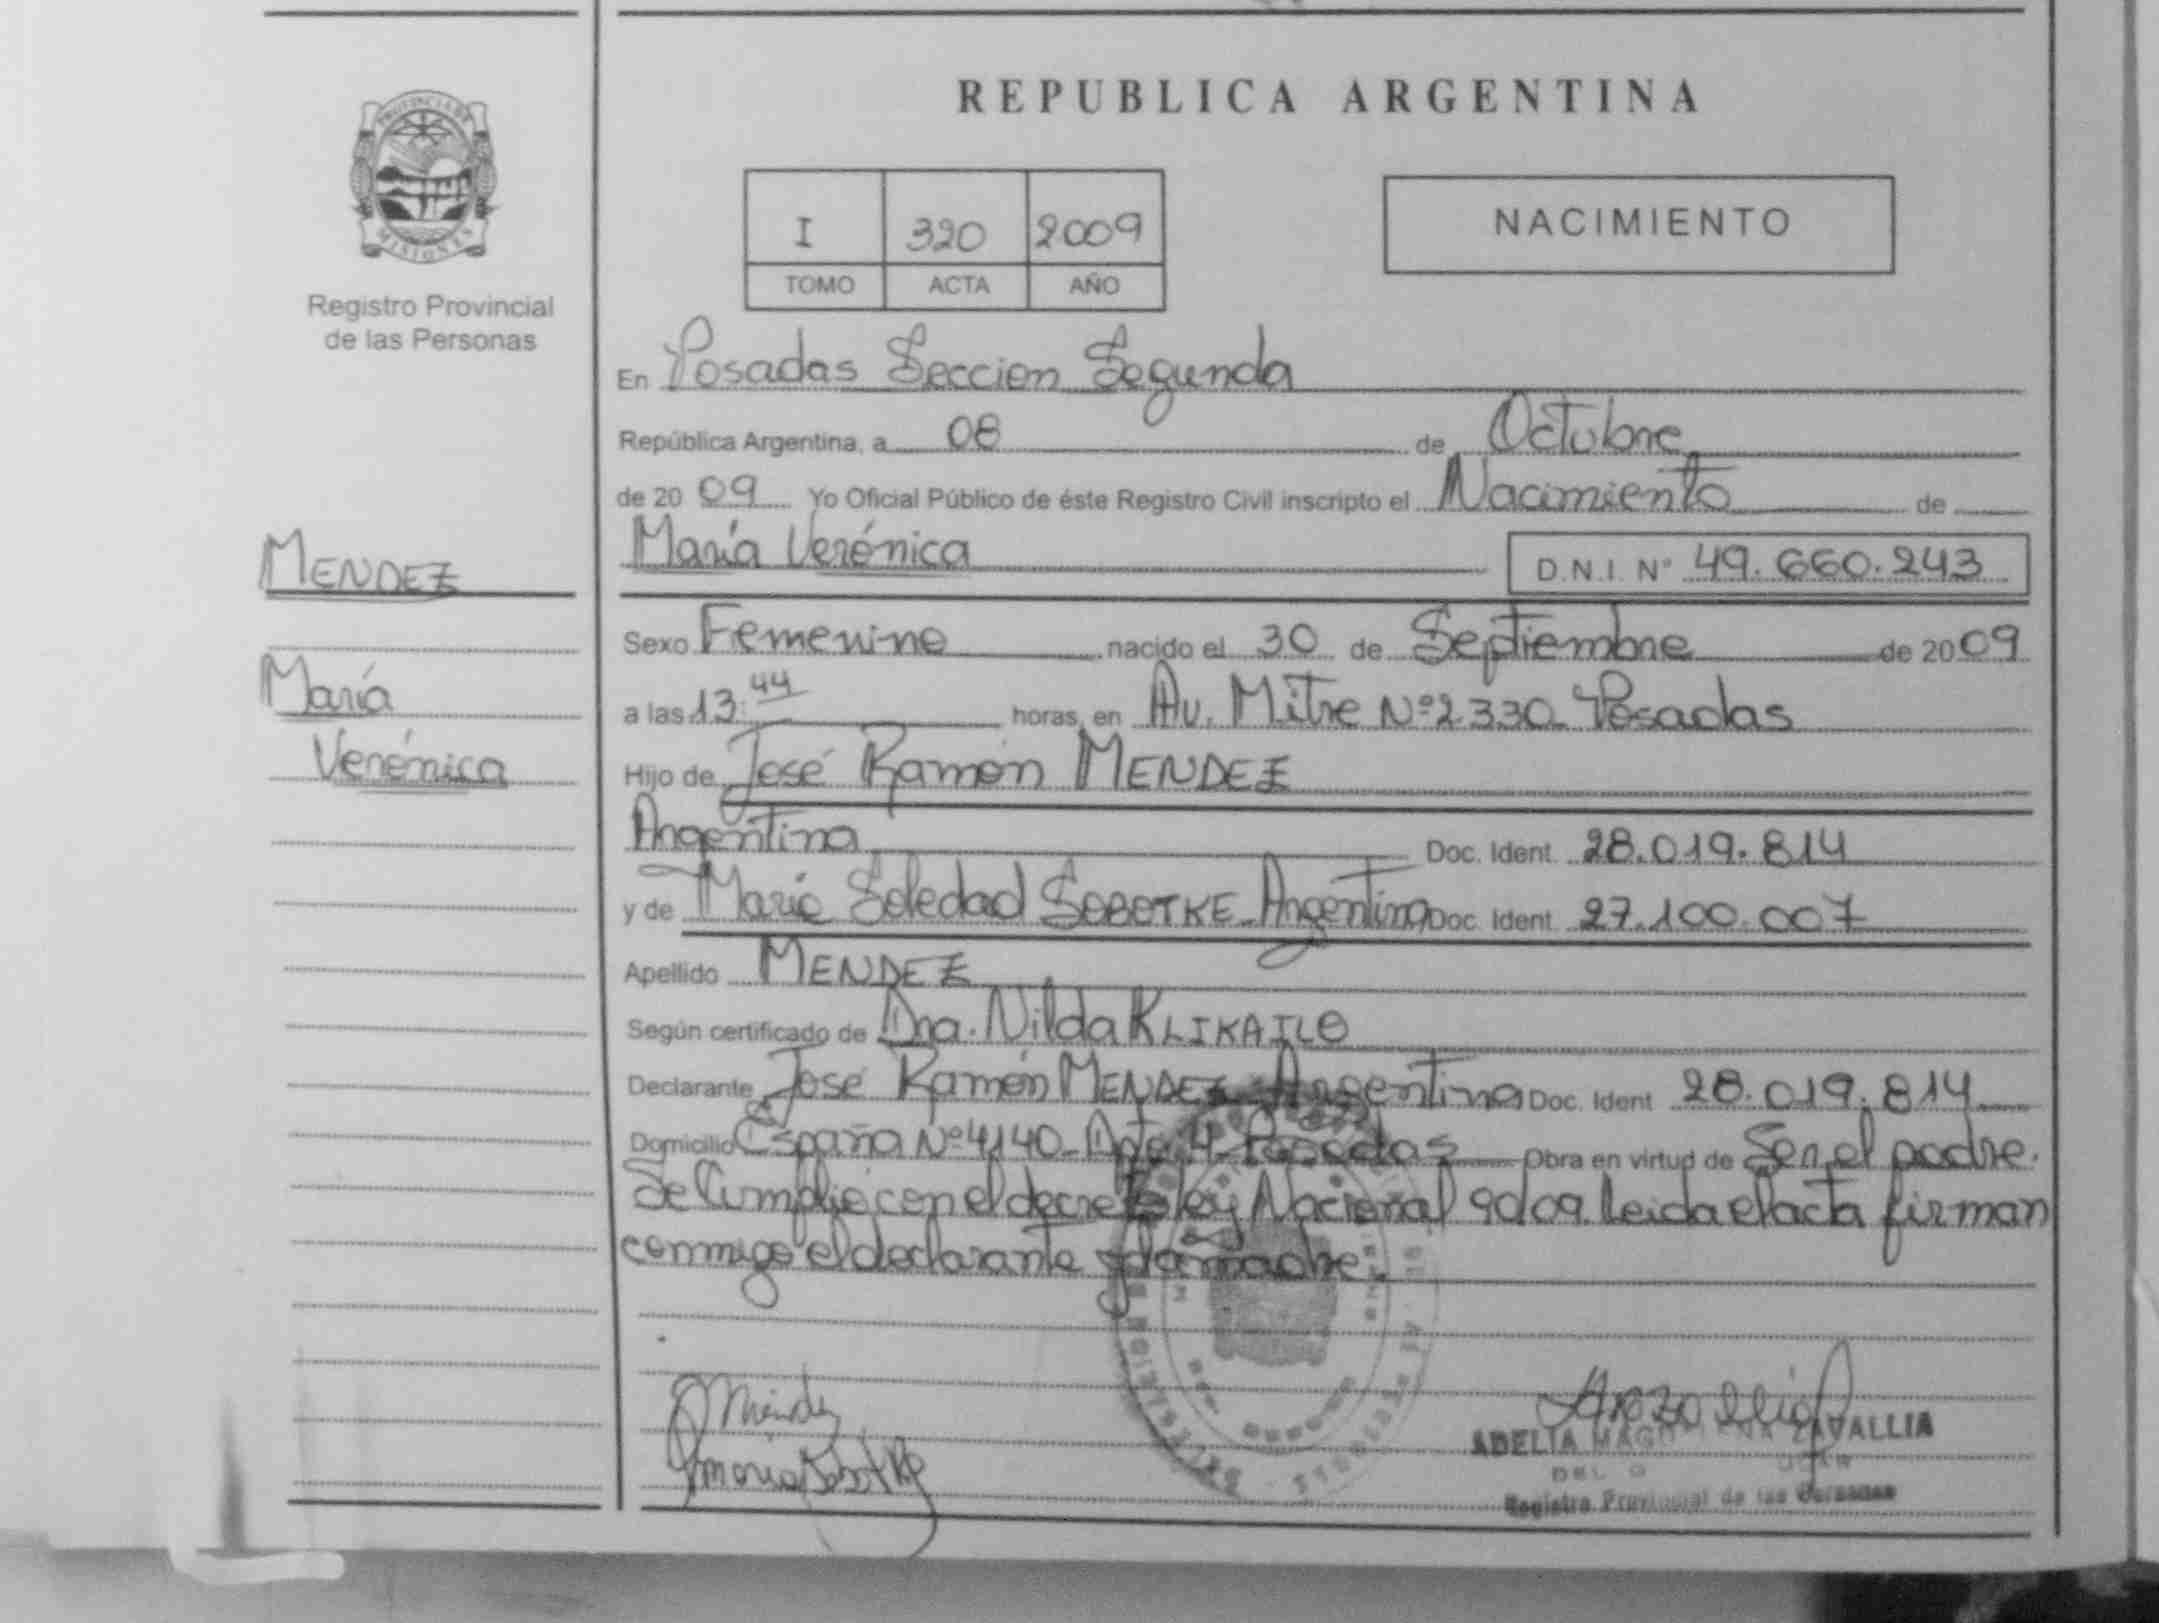 PROVINCIA DE
MISIONES
Registro Provincial
de las Personas
MENDEZ
María
Verónica
REPUBLICA ARGENTINA
I 320 2009
TOMO ACTA AÑO
NACIMIENTO
En Posadas Seccion Segunda
República Argentina, a 08 de Octubre
de 20 09 Yo Oficial Público de éste Registro Civil inscripto el Nacimiento de
María Verónica D.N.I. N° 49.660.243
Sexo Femenino nacido el 30 de Septiembre de 20 09
a las 13:44 horas, en Av. Mitre Nº 2.330 Posadas
Hijo de José Ramón MENDEZ
Argentino Doc. Ident. 28.019.814
y de María Soledad SOBOTKE - Argentina Doc. Ident. 27.100.007
Apellido MENDEZ
Según certificado de Dra. Nilda KLIKAILO
Declarante José Ramón MENDEZ Argentino Doc. Ident 28.019.814
Domicilio España Nº 4140 - Dpto 4 - Posadas Obra en virtud de Ser el padre.
Se Cumplió con el decreto ley Nacional 9009. leida el acta firman
conmigo el declarante y la madre.
JMéndez
María Sobotke
ADELIA MAGDALENA ZAVALLIA
Registro Provincial de las Personas